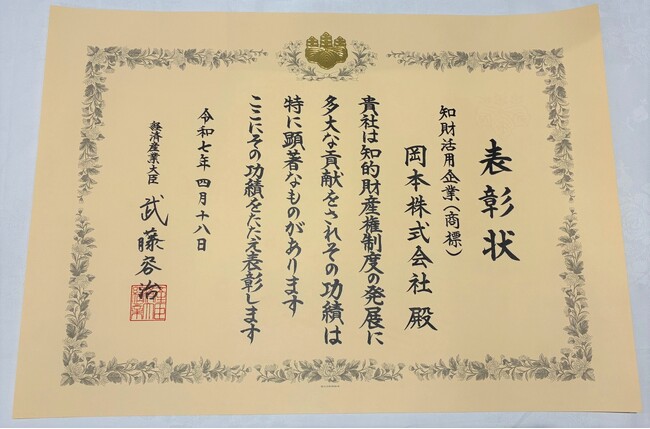 表彰状
知財活用企業(商標)
岡本株式会社 殿
貴社は知的財産権制度の発展に
多大な貢献をされその功績は
特に顕著なものがあります
ここにその功績をたたえ表彰します
令和七年四月十八日
経済産業大臣 武藤容治